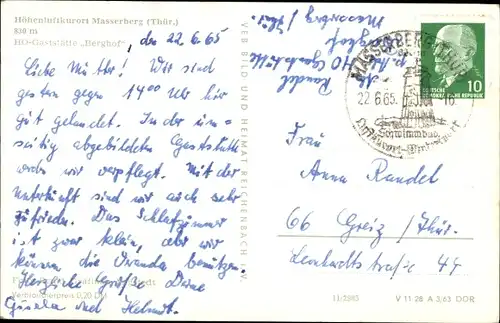 Höhenluftkurort Masserberg (Thür.)
830 m
HO-Gaststätte „Berghof"
, den 22.6.65
Liebe Mutter! Wir sind
gestern gegen 14⁰⁰ Uhr hier
gut gelandet. In der um=
seitig abgebildeten Gaststätte
werden wir verpflegt. Mit der
Unterkunft sind wir auch sehr
zufrieden. Das Schlafzimmer
ist zwar klein, aber wir
können die Veranda benutzen.
Herzliche Grüße Deine
Gisela und Helmut.
Verbraucherpreis 0,20 DM
VEB BILD UND HEIMAT REICHENBACH I. V.
HO Gaststätte
Masserberg / Thür.
MASSERBERG
22.6.65
16
Schwimmbad
DEUTSCHE
DEMOKRATISCHE REPUBLIK
10
Frau
Anna Randel
66 Greiz / Thür.
Leonhardtstraße 44
11/2580
V 11 28 A 3,63 DDR